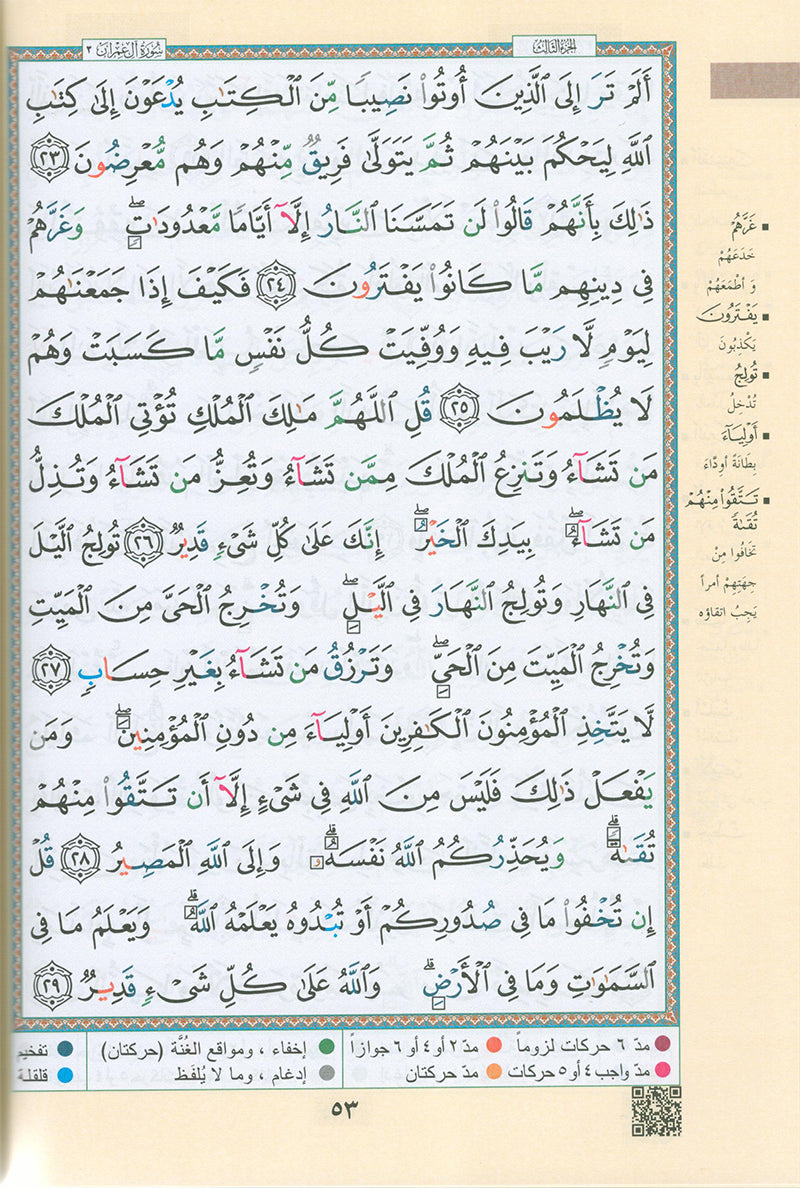 سُورَةُ آلِ عِمْرَان ٣
الجُزءُ الثَّالِثُ
أَلَمْ تَرَ إِلَى ٱلَّذِينَ أُوتُوا۟ نَصِيبًا مِّنَ ٱلْكِتَٰبِ يُدْعَوْنَ إِلَىٰ كِتَٰبِ
ٱللَّهِ لِيَحْكُمَ بَيْنَهُمْ ثُمَّ يَتَوَلَّىٰ فَرِيقٌ مِّنْهُمْ وَهُم مُّعْرِضُونَ ٢٣
ذَٰلِكَ بِأَنَّهُمْ قَالُوا۟ لَن تَمَسَّنَا ٱلنَّارُ إِلَّآ أَيَّامًا مَّعْدُودَٰتٍ ۖ وَغَرَّهُمْ
فِى دِينِهِم مَّا كَانُوا۟ يَفْتَرُونَ ٢٤ فَكَيْفَ إِذَا جَمَعْنَٰهُمْ
لِيَوْمٍ لَّا رَيْبَ فِيهِ وَوُفِّيَتْ كُلُّ نَفْسٍ مَّا كَسَبَتْ وَهُمْ
لَا يُظْلَمُونَ ٢٥ قُلِ ٱللَّهُمَّ مَٰلِكَ ٱلْمُلْكِ تُؤْتِى ٱلْمُلْكَ
مَن تَشَآءُ وَتَنزِعُ ٱلْمُلْكَ مِمَّن تَشَآءُ وَتُعِزُّ مَن تَشَآءُ وَتُذِلُّ
مَن تَشَآءُ ۖ بِيَدِكَ ٱلْخَيْرُ ۖ إِنَّكَ عَلَىٰ كُلِّ شَىْءٍ قَدِيرٌ ٢٦ تُولِجُ ٱلَّيْلَ
فِى ٱلنَّهَارِ وَتُولِجُ ٱلنَّهَارَ فِى ٱلَّيْلِ ۖ وَتُخْرِجُ ٱلْحَىَّ مِنَ ٱلْمَيِّتِ
وَتُخْرِجُ ٱلْمَيِّتَ مِنَ ٱلْحَىِّ ۖ وَتَرْزُقُ مَن تَشَآءُ بِغَيْرِ حِسَابٍ ٢٧
لَّا يَتَّخِذِ ٱلْمُؤْمِنُونَ ٱلْكَٰفِرِينَ أَوْلِيَآءَ مِن دُونِ ٱلْمُؤْمِنِينَ ۖ وَمَن
يَفْعَلْ ذَٰلِكَ فَلَيْسَ مِنَ ٱللَّهِ فِى شَىْءٍ إِلَّآ أَن تَتَّقُوا۟ مِنْهُمْ
تُقَىٰةً ۗ وَيُحَذِّرُكُمُ ٱللَّهُ نَفْسَهُۥ ۗ وَإِلَى ٱللَّهِ ٱلْمَصِيرُ ٢٨ قُلْ
إِن تُخْفُوا۟ مَا فِى صُدُورِكُمْ أَوْ تُبْدُوهُ يَعْلَمْهُ ٱللَّهُ ۗ وَيَعْلَمُ مَا فِى
ٱلسَّمَٰوَٰتِ وَمَا فِى ٱلْأَرْضِ ۗ وَٱللَّهُ عَلَىٰ كُلِّ شَىْءٍ قَدِيرٌ ٢٩
غَرَّهُمْ
خَدَعَهُمْ
وَ أَطْمَعَهُمْ
يَفْتَرُونَ
يَكْذِبُونَ
تُولِجُ
تُدْخِلُ
أَوْلِيَآءَ
بِطَانَةً أوِدَّاءَ
تَتَّقُوا۟ مِنْهُمْ
تُقَىٰةً
تَخَافُوا مِنْ
جِهَتِهِمْ أمراً
يَجِبُ اتقاؤه
مدّ ٦ حركات لزوماً
مدّ ٢ أو ٤ أو ٦ جوازاً
إخفاء ، ومواقع الغُنَّة (حركتان)
تفخيم
مدّ واجب ٤ أو ٥ حركات
مدّ حركتان
إدغام ، وما لا يُلفَظ
قلقلة
٥٣